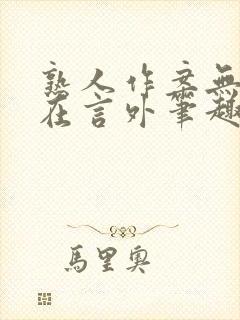 熟人作案無
在言外筆趣
馬里奧